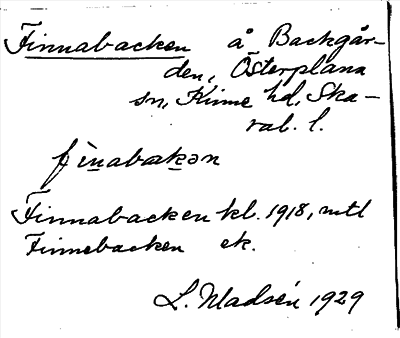 Finnabacken å Backgår-
den, Österplana
sn, Kinne hd, Ska-
rab. l.
fìnabakən
Finnabacken kl. 1918, mtl
Finnebacken ek.
L. Madsén 1929